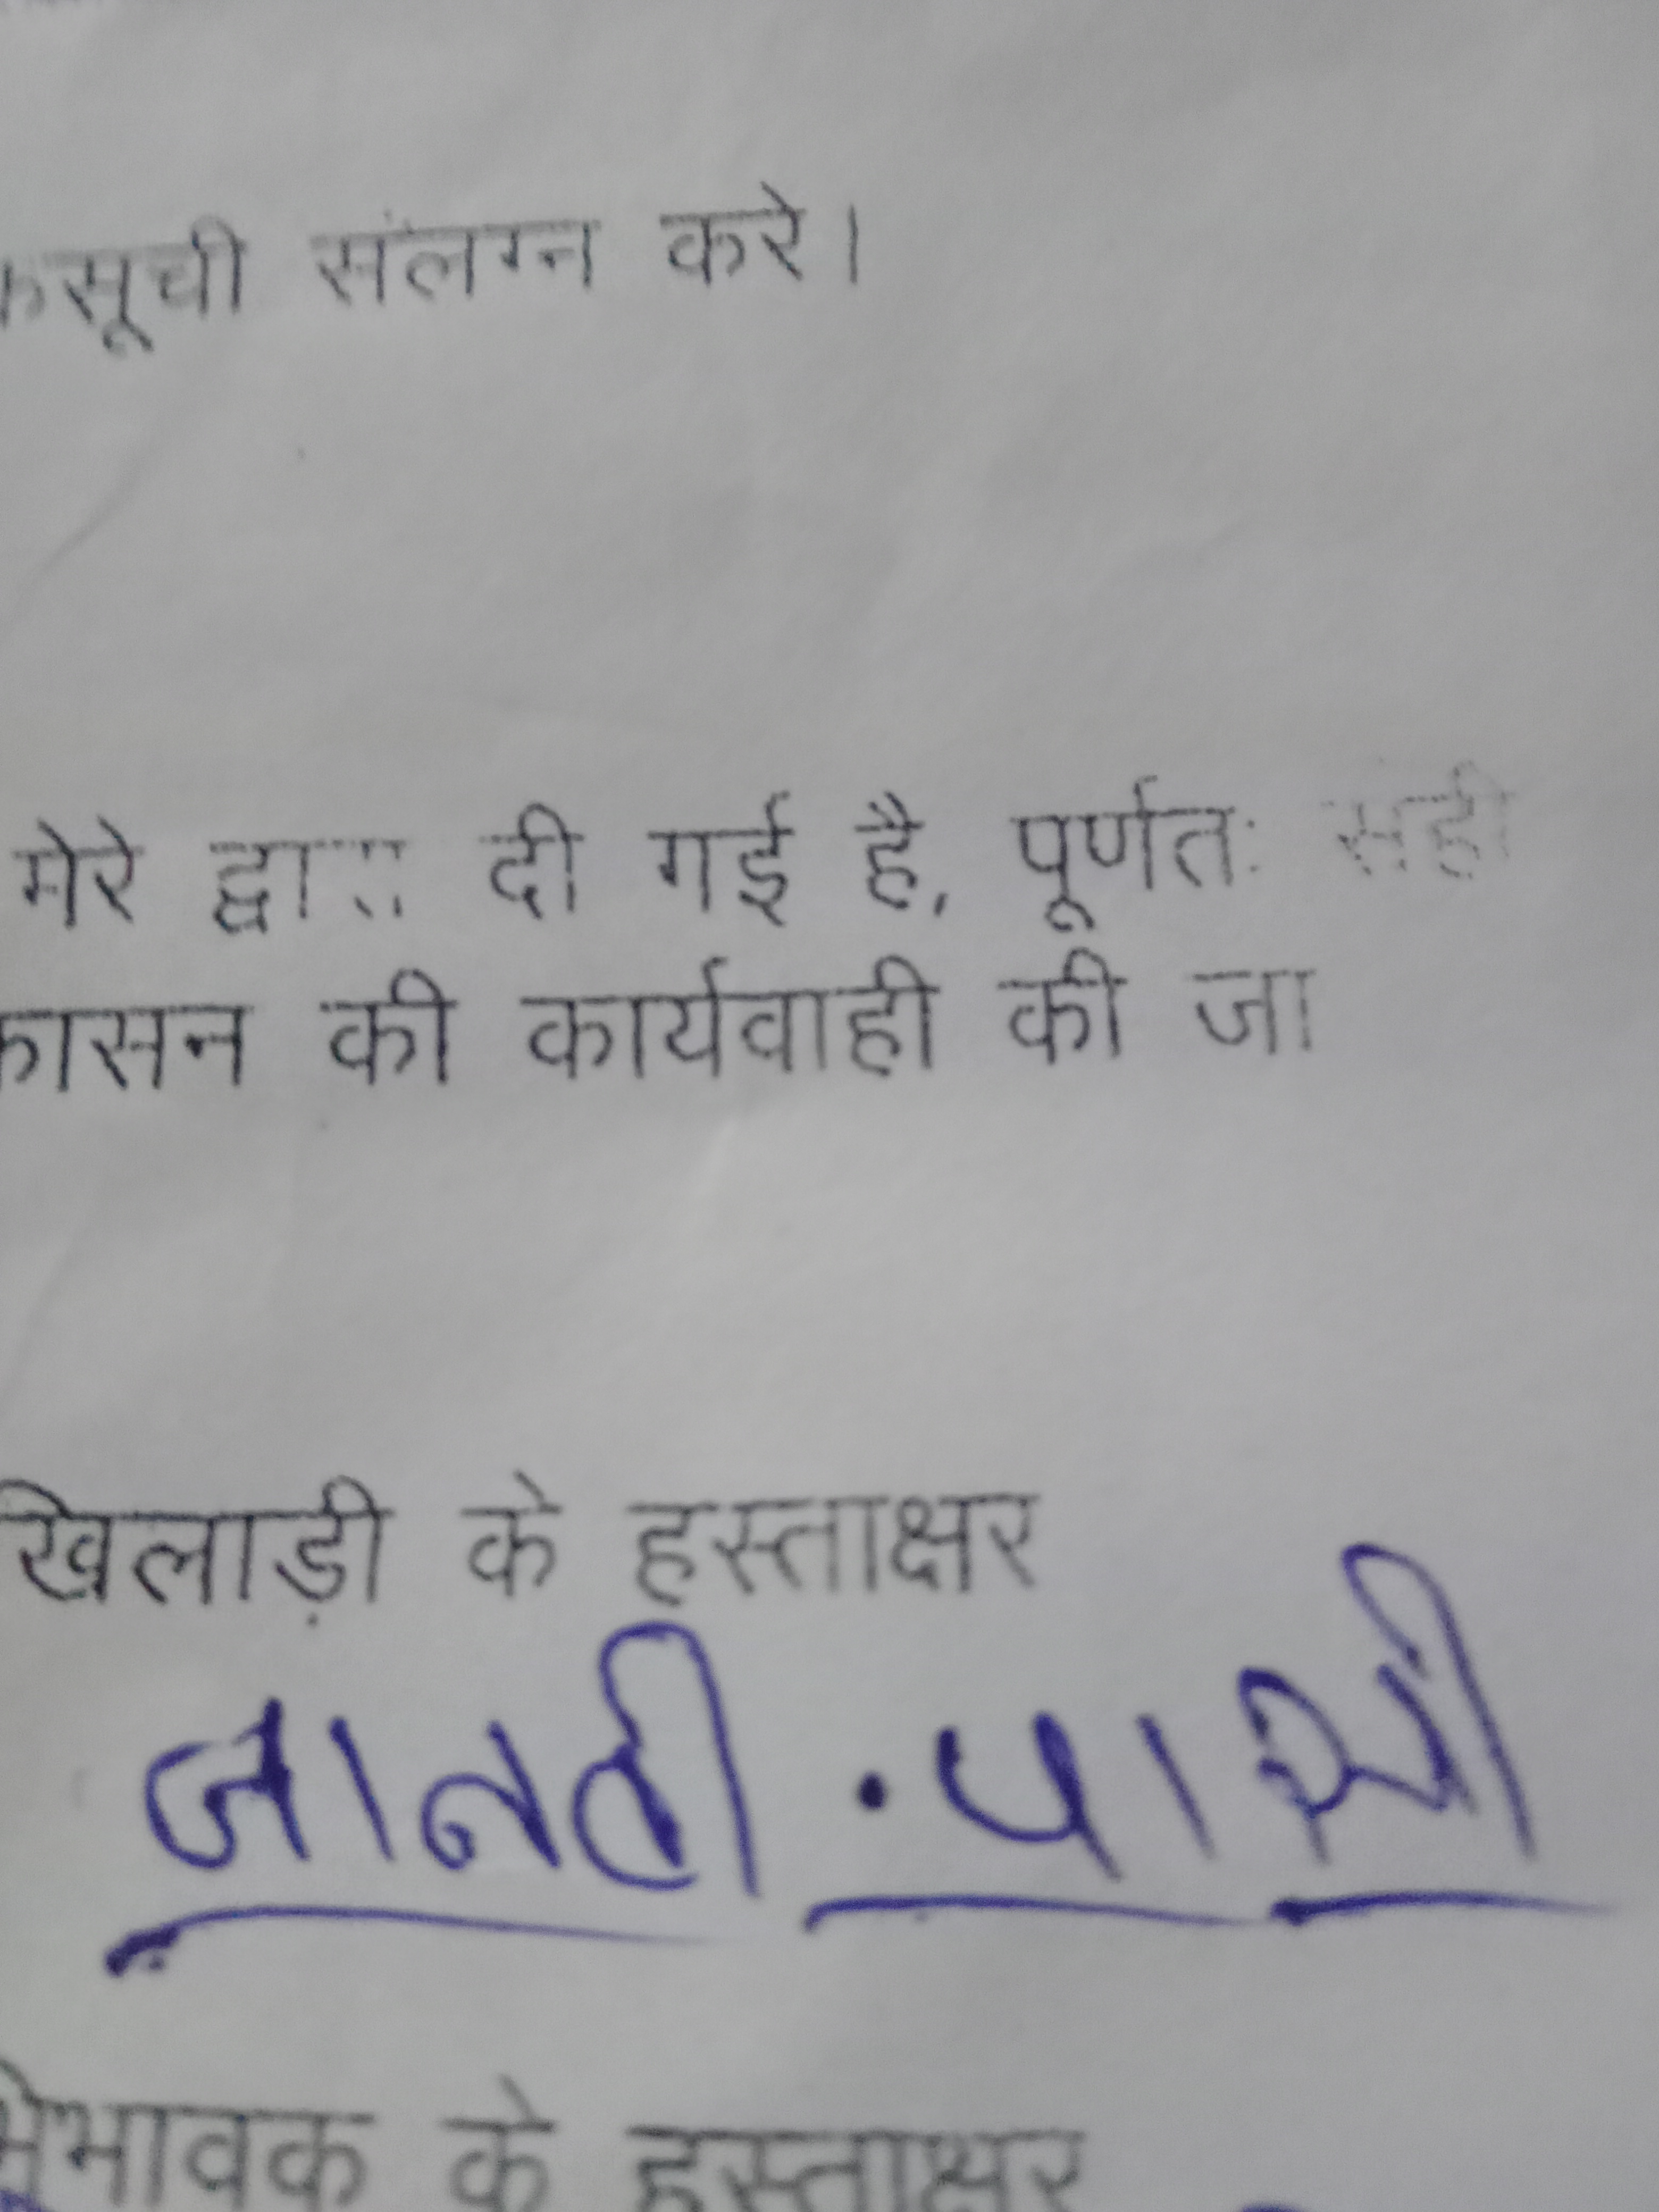 कसूची संलग्न करे।
मेरे द्वारा दी गई है, पूर्णतः सही
कासन की कार्यवाही की जा
खिलाड़ी के हस्ताक्षर
जानवी . पासी
भिभावक के हस्ताक्षर